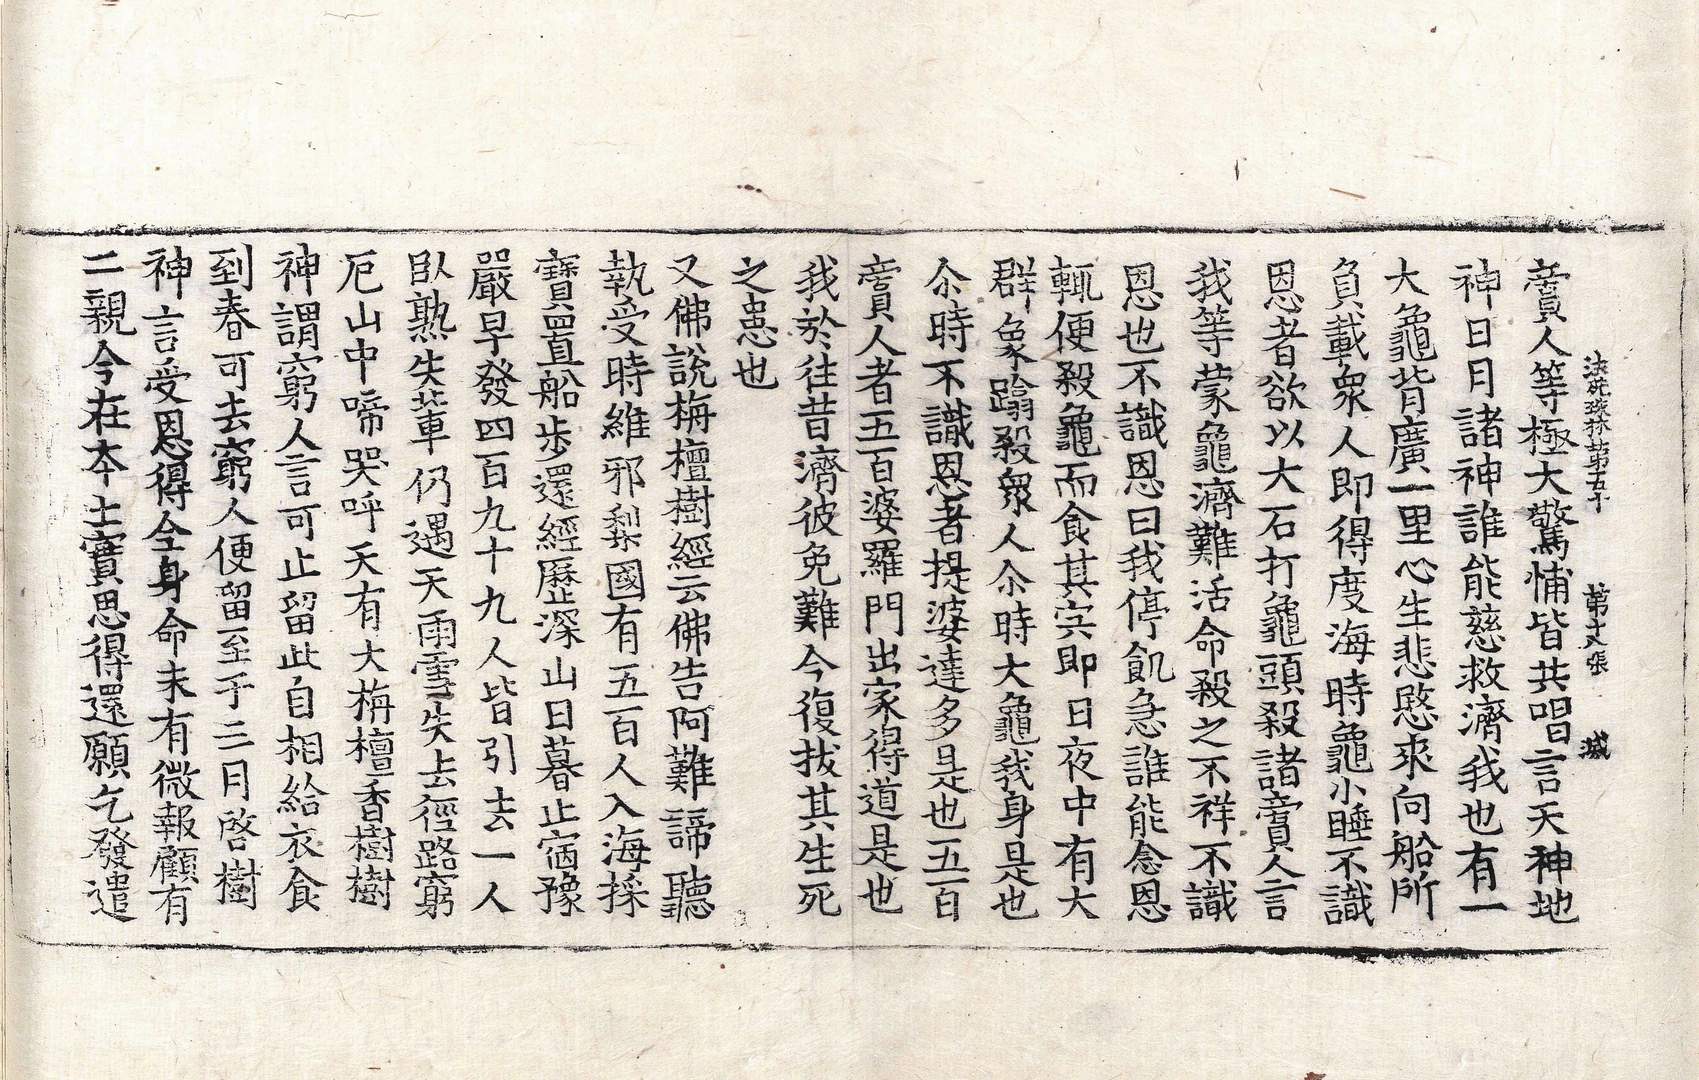 法苑珠林第五十　第十丈張　滅
賷人等極大驚怖皆共唱言天神地
神日月諸神誰能慈救濟我也有一
大龜背廣一里心生悲愍來向船所
負載衆人即得度海時龜小睡不識
恩者欲以大石打龜頭殺諸賷人言
我等蒙龜濟難活命殺之不祥不識
恩也不識恩曰我停飢急誰能念恩
輒便殺龜而食其宍即日夜中有大
群象蹋殺衆人尒時大龜我身是也
尒時不識恩者提婆達多是也五百
賷人者五百婆羅門出家得道是也
我於往昔濟彼免難今復拔其生死
之患也
又佛說栴檀樹經云佛告阿難諦聽
執受時維邪梨國有五百人入海採
寶置船步還經歷深山日暮止宿豫
嚴早發四百九十九人皆引去一人
臥熟失輩仍遇天雨雪失去徑路窮
厄山中啼哭呼天有大栴檀香樹樹
神謂窮人言可止留此自相給衣食
到春可去窮人便留至于三月啓樹
神言受恩得全身命未有微報顧有
二親今在本土實思得還願乞發遣